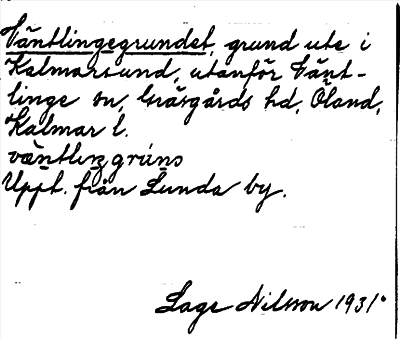 Väntlingegrundet, grund ute i
Kalmarsund, utanför Vänt-
linge sn, Gräsgårds hd, Öland,
Kalmar l.
väntlıŋgrúns
Uppt. från Lunda by.
Lage Nilsson 1931.